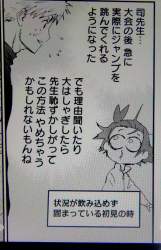 司先生…
大会の後 急に
実際にジャンプを
跳んでくれる
ようになった
でも理由聞いたり
大はしゃぎしたら
先生恥ずかしがって
この方法 やめちゃう
かもしれないもんね
状況が飲み込めず
固まっている初見の時